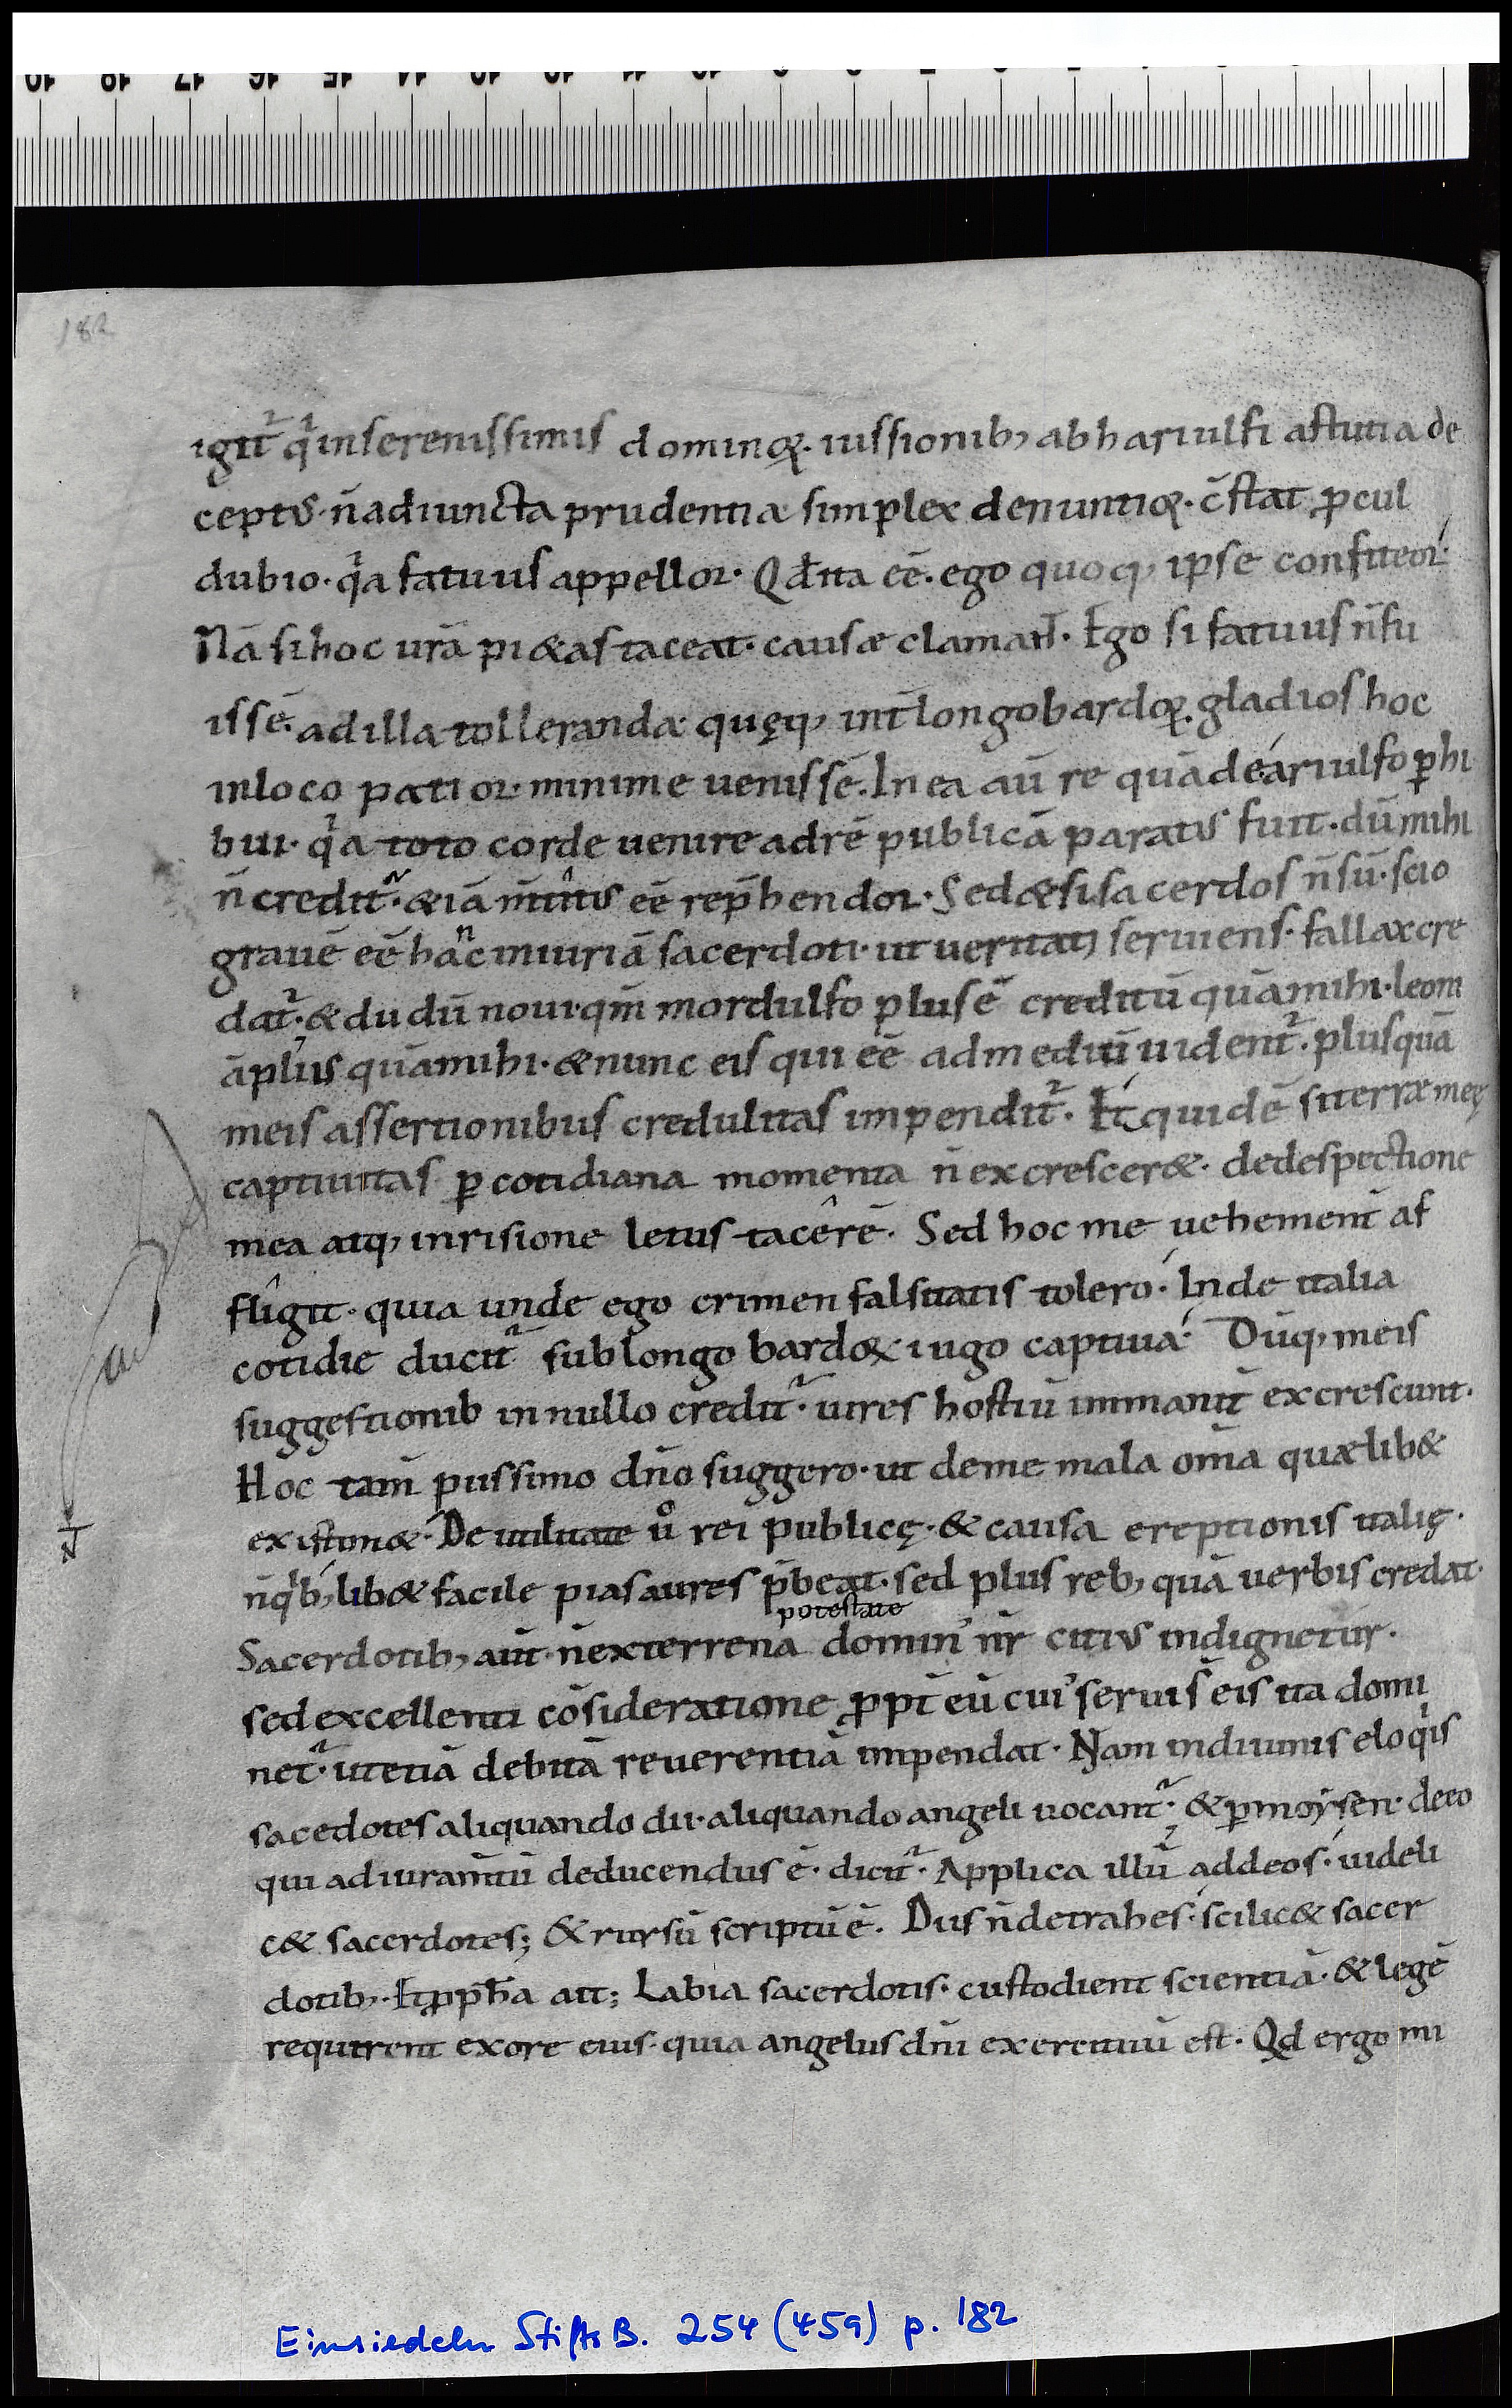 182
igit᷑ qͥ in serenissimis dominoꝝ· iussionib; ab hariulfi astutia de
ceptus· n̄ adiuncta prudentia simplex denuntioꝝ· c̄stat ꝓcul
dubio· qͥa fatuus appellor· Qd̄ ita eē· ego quoq; ipse confiteor·
Nā si hoc urā pi&as taceat· causæ clamant̄· Ego si fatuus n̄ fu
issē· ad illa tolleranda quęq; int̄ longobardoꝝ· gladios hoc
in loco patior· minime uenissē· In ea aū re quā de ariulfo ꝑhi
bui· qͥa toto corde uenire ad rē publicā paratus fuit· dū mihi
n̄ credit᷑· &iā m̄titus eē rep̄hendor· Sed & si sacerdos n̄ sū· scio
grauē eē hanc iniuriā sacerdoti· ut ueritati seruiens· fallax cre
dat᷑· & dudū noui· qm̄ mordulfo plus ē creditū quā mihi· leoni
āplius quā mihi· & nunc eis qui eē ad mediū uident᷑· plus quā
meis assertionibus credulitas impendit᷑· Et quidē si terræ meę
captiuitas ꝑ cotidiana momenta n̄ excrescer&· de despectione
mea atq; inrisione letus tacêrē· Sed hoc me uehement̄ af
flîgit· quia unde ego crimen falsitatis tolero· Inde italia
cotidie ducit᷑ sub longobardoꝝ iugo captiua· Dūq; meis
suggestionib in nullo credit᷑· uires hostiū immanit̄ excrescunt·
Hoc tam̄ piissimo dn̄o suggero· ut de me mala om̄a quælib&
existim&· De utilitate uͦ rei publicę· & causa ereptionis italię·
n̄ qͥb; lib& facile pias aures p̄beat· sed plus reb; quā uerbis credat·
potestate
Sacerdotib; aut̄ n̄ ex terrena domin’ nr̄ citius indignetur·
sed excellenti cōsideratione ꝓpt̄ eū cui’ serui s̄ eis ita domi
net᷑· ut etiā debitā reuerentiā impendat· Nam in diuinis eloqͥis
sacedotes aliquando dii· aliquando angeli uocant᷑· & ꝑ moysen· de eo
qui ad iuram̄tū deducendus ē· dicit᷑· Applica illū ad deos· uideli
c& sacerdotes; & rursū scriptū ē· Diis n̄ detrahes· scilic& sacer
dotib;· Et ꝓph̄a ait; Labia sacerdotis· custodient scientiā· & legē
requirent ex ore eius· quia angelus dn̄i exercituū est· Qd̄ ergo mi
Einsiedeln StiftsB. 254 (459) p. 182